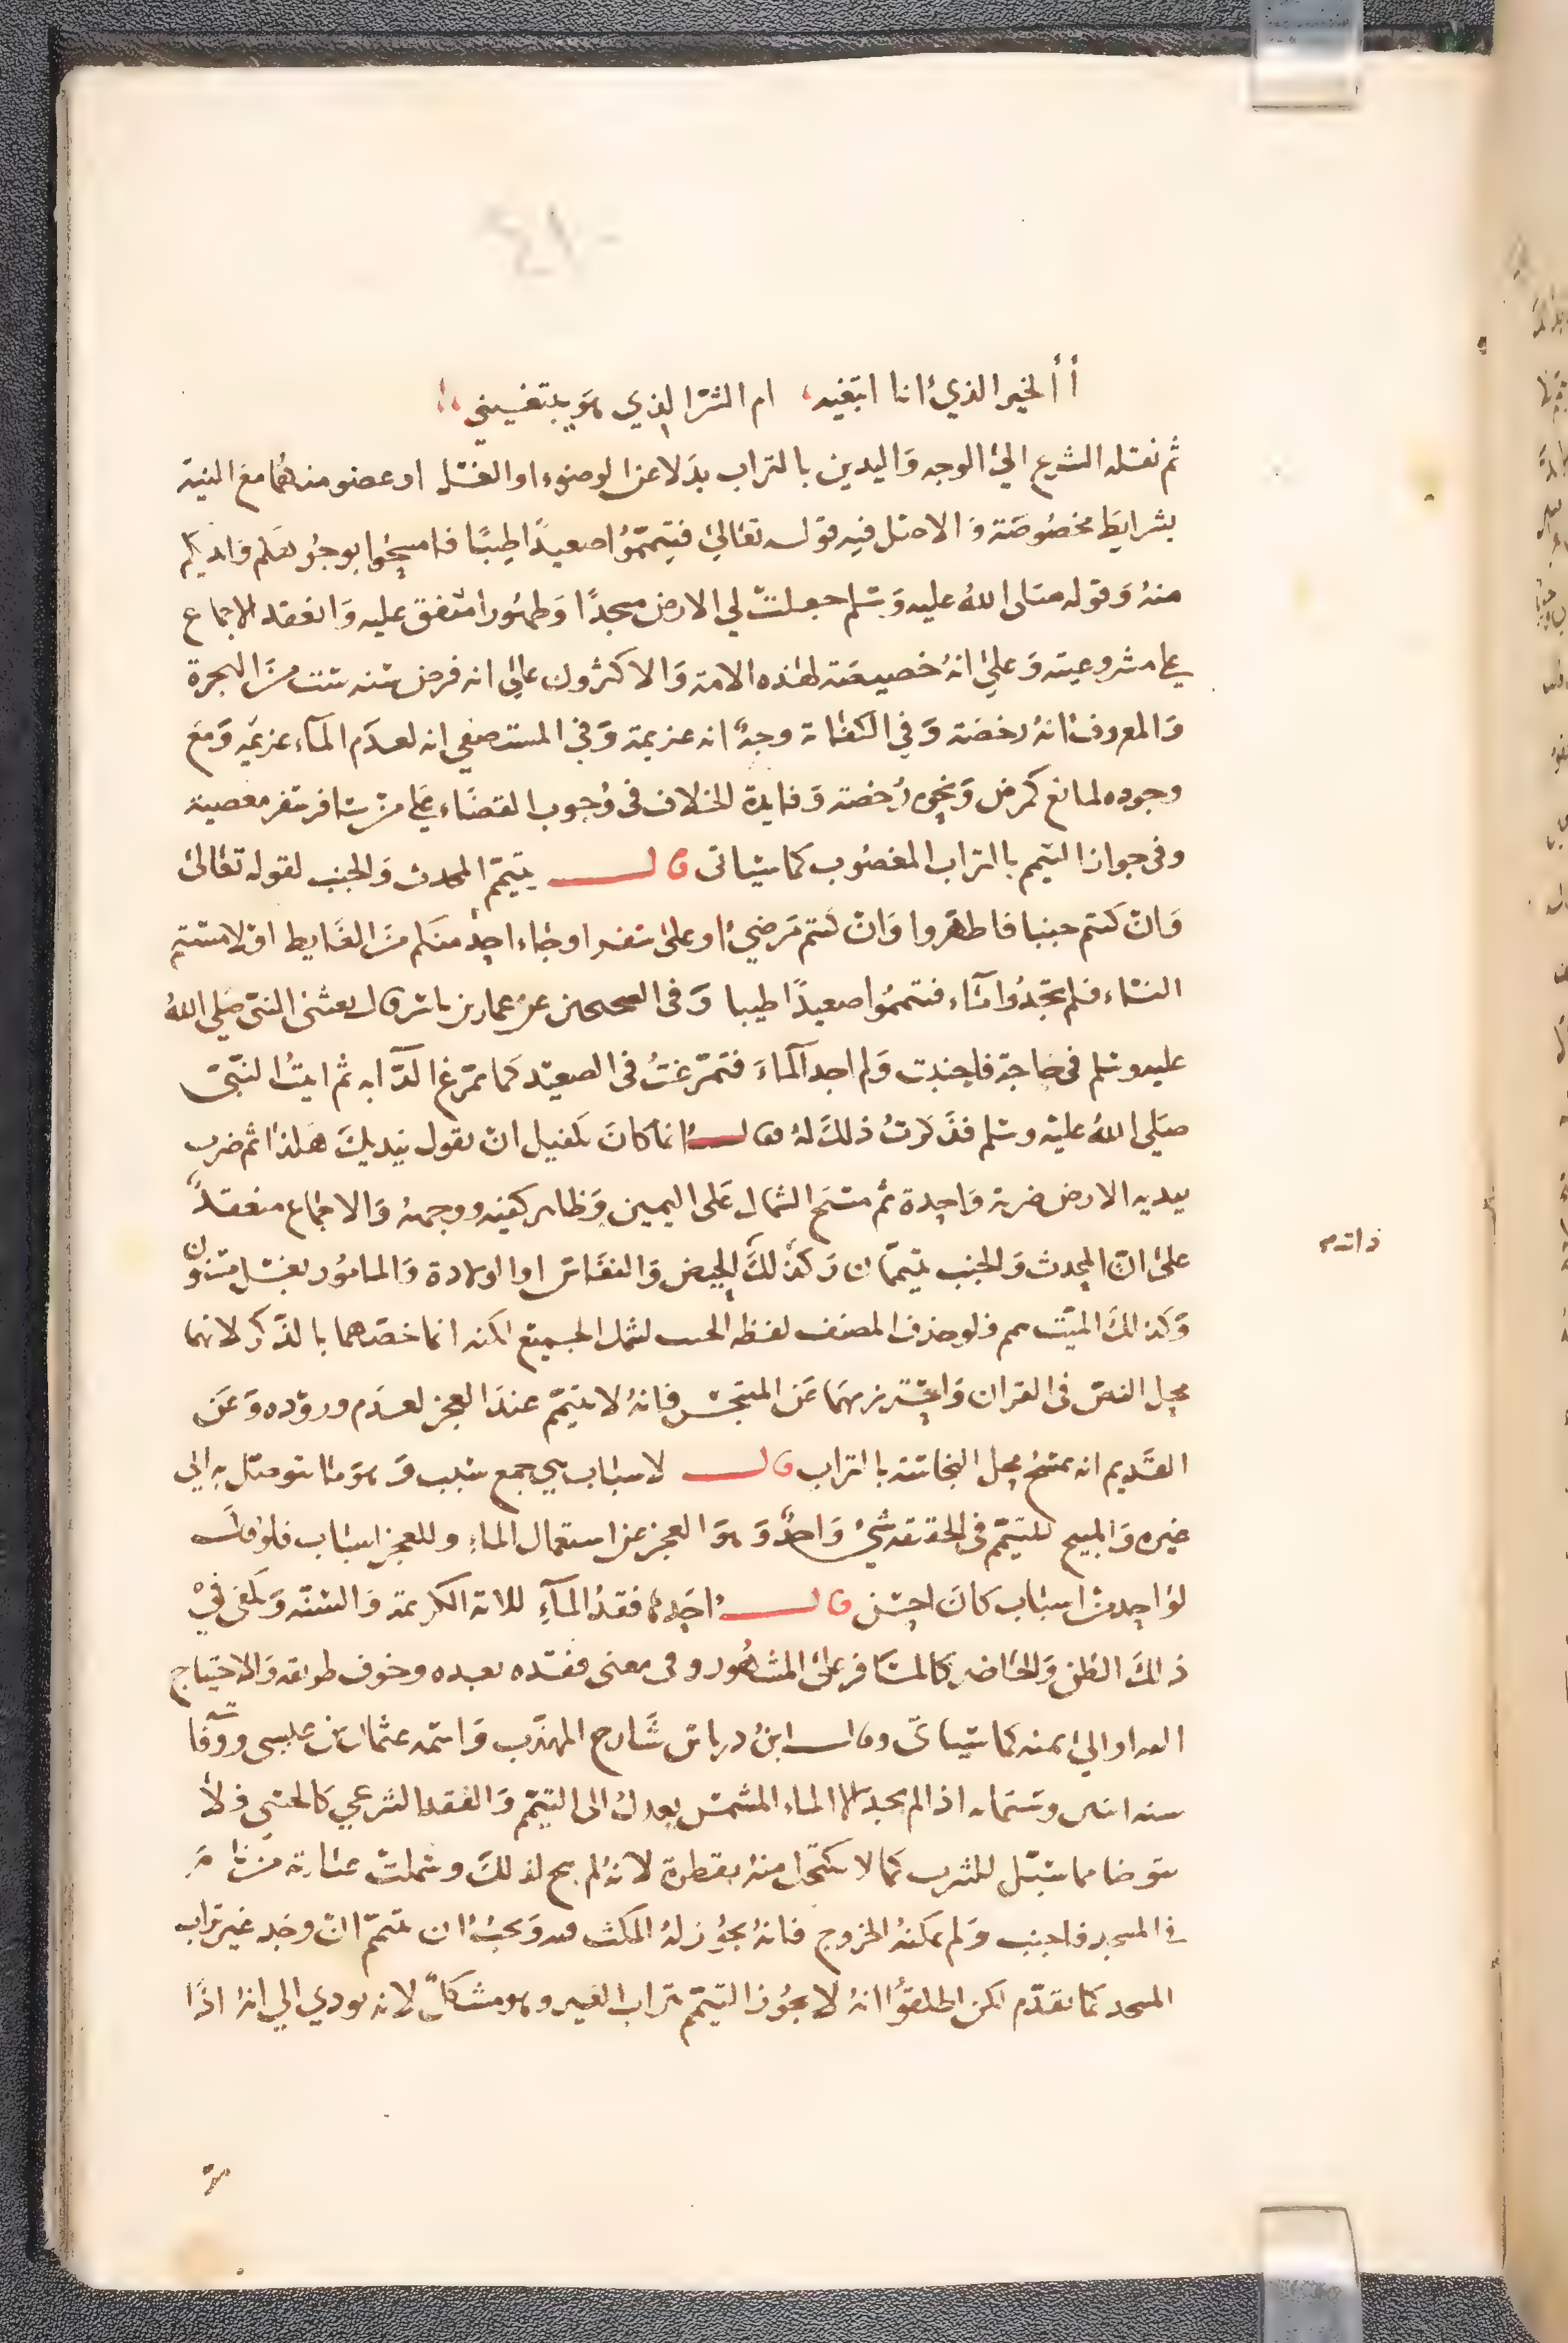 أألخير الذي انا ابتغيه، ام الشر الذي هو يبتغيني،
ثم نقله الشرع الي الوجه واليدين بالتراب بدلا عن الوضوء او الغسل او عضو منهما مع النية
بشرايط مخصوصة والاصل فيه قوله تعالي فتيمموا صعيدا طيبا فامسحوا بوجوهكم وايديكم
منه وقوله صلى الله عليه وسلم جعلت لي الارض مسجدا وطهورا متفق عليه وانعقد الاجماع
على مشروعيته وعلى انه خصيصة لهذه الامة والاكثرون على انه فرض سنه ست من الهجرة
والمعروف انه رخصة وفي الكفاية وجه انه عزيمة وفي المستصفي انه لعدم الماء عزيمه ومع
وجوده لمانع كمرض ونحوه رخصة وفايدة الخلاف في وجوب القضاء على من سافر سفر معصية
وفى جواز التيمم بالتراب المغصوب كما سياتى قال يتيمم المحدث والجنب لقوله تعالى
وان كنتم جنبا فاطهروا وان كنتم مرضي او على سفر او جاء احد منكم من الغايط او لامستم
النساء فلم تجدوا ماء فتيمموا صعيدا طيبا وفى الصحيحين عن عمار بن ياسر قال بعثنى النبى صلى الله
عليه وسلم فى حاجة فاجنبت ولم اجد الماء فتمرغت فى الصعيد كما تمرغ الدابه ثم اتيت النبى
صلى الله عليه وسلم فذكرت ذلك له فقال انما كان يكفيك ان تقول بيديك هكذا ثم ضرب
بيديه الارض ضربة واحدة ثم مسح الشمال على اليمين وظاهر كفيه ووجهه والاجماع منعقد
على ان المحدث والجنب يتيممان وكذلك الحيض والنفاس او الولادة والمامور بغسل مسنون
ذات
وكذلك الميت ييمم فلو حذف المصنف لفظه الجنب لشمل الجميع لكنه انما خصهما بالذكر لانهما
محل النص فى القران واحترز بهما عن المتنجس فانه لا يتيمم عند العجز لعدم وروده وعن
القديم انه يمسح محل النجاسة بالتراب قال لاسباب هي جمع سبب وهو ما يتوصل به الى
غيره والمبيح للتيمم فى الحقيقه شئ واحد وهو العجز عن استعمال الماء وللعجز اسباب فلو قال
لواحد من اسباب كان احسن قال احدها فقد الماء للاية الكريمة والسنة ويكفى في
ذلك الظن والحاضر كالمسافر على المشهور وفى معنى فقده بعده وخوف طريقه والاحتياج
اليه او الي ثمنه كما سياتى وقال ابن درباس شارح المهذب واسمه عثمان بن عيسى ووفاته
سنه اثنين وستمايه اذا لم يجد الا الماء المشمس يعدل الى التيمم والفقد الشرعي كالحسى فلا
يتوضا مما سبل للشرب كما لا يكتحل منه بقطرة لانه لم يبح لذلك وشملت عبارته من نام
في المسجد فاجنب ولم يمكنه الخروج فانه يجوز له المكث فيه ويجب ان يتيمم ان وجد غير تراب
المسجد كما تقدم لكن اطلقوا انه لا يجوز التيمم بتراب الغير وهو مشكل لانه يودي الي انه اذا